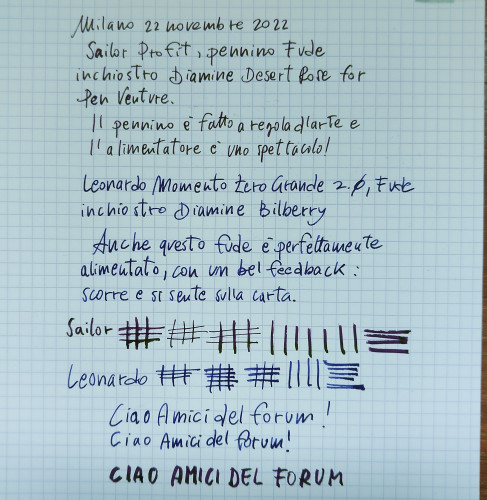 Milano 22 novembre 2022
Sailor Profit, pennino Fude
inchiostro Diamine Desert Rose for
Pen Venture.
Il pennino è fatto a regola d'arte e
l'alimentatore è uno spettacolo!
Leonardo Momento Zero Grande 2.0, Fude
inchiostro Diamine Bilberry
Anche questo fude è perfettamente
alimentato, con un bel feedback:
scorre e si sente sulla carta.
Sailor
Leonardo
Ciao Amici del forum!
Ciao Amici del forum!
CIAO AMICI DEL FORUM